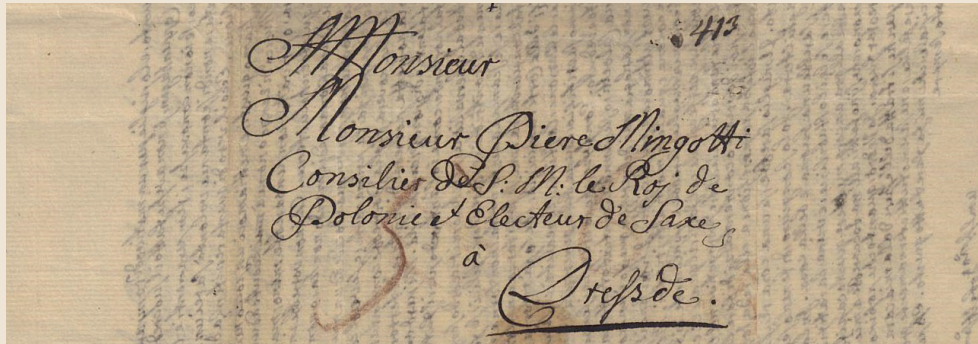 413
Monsieur
Monsieur Piere Mingotti
Consilier de S: M: le Roj de
Polonie et Electeur de Saxe
à
Dressde.